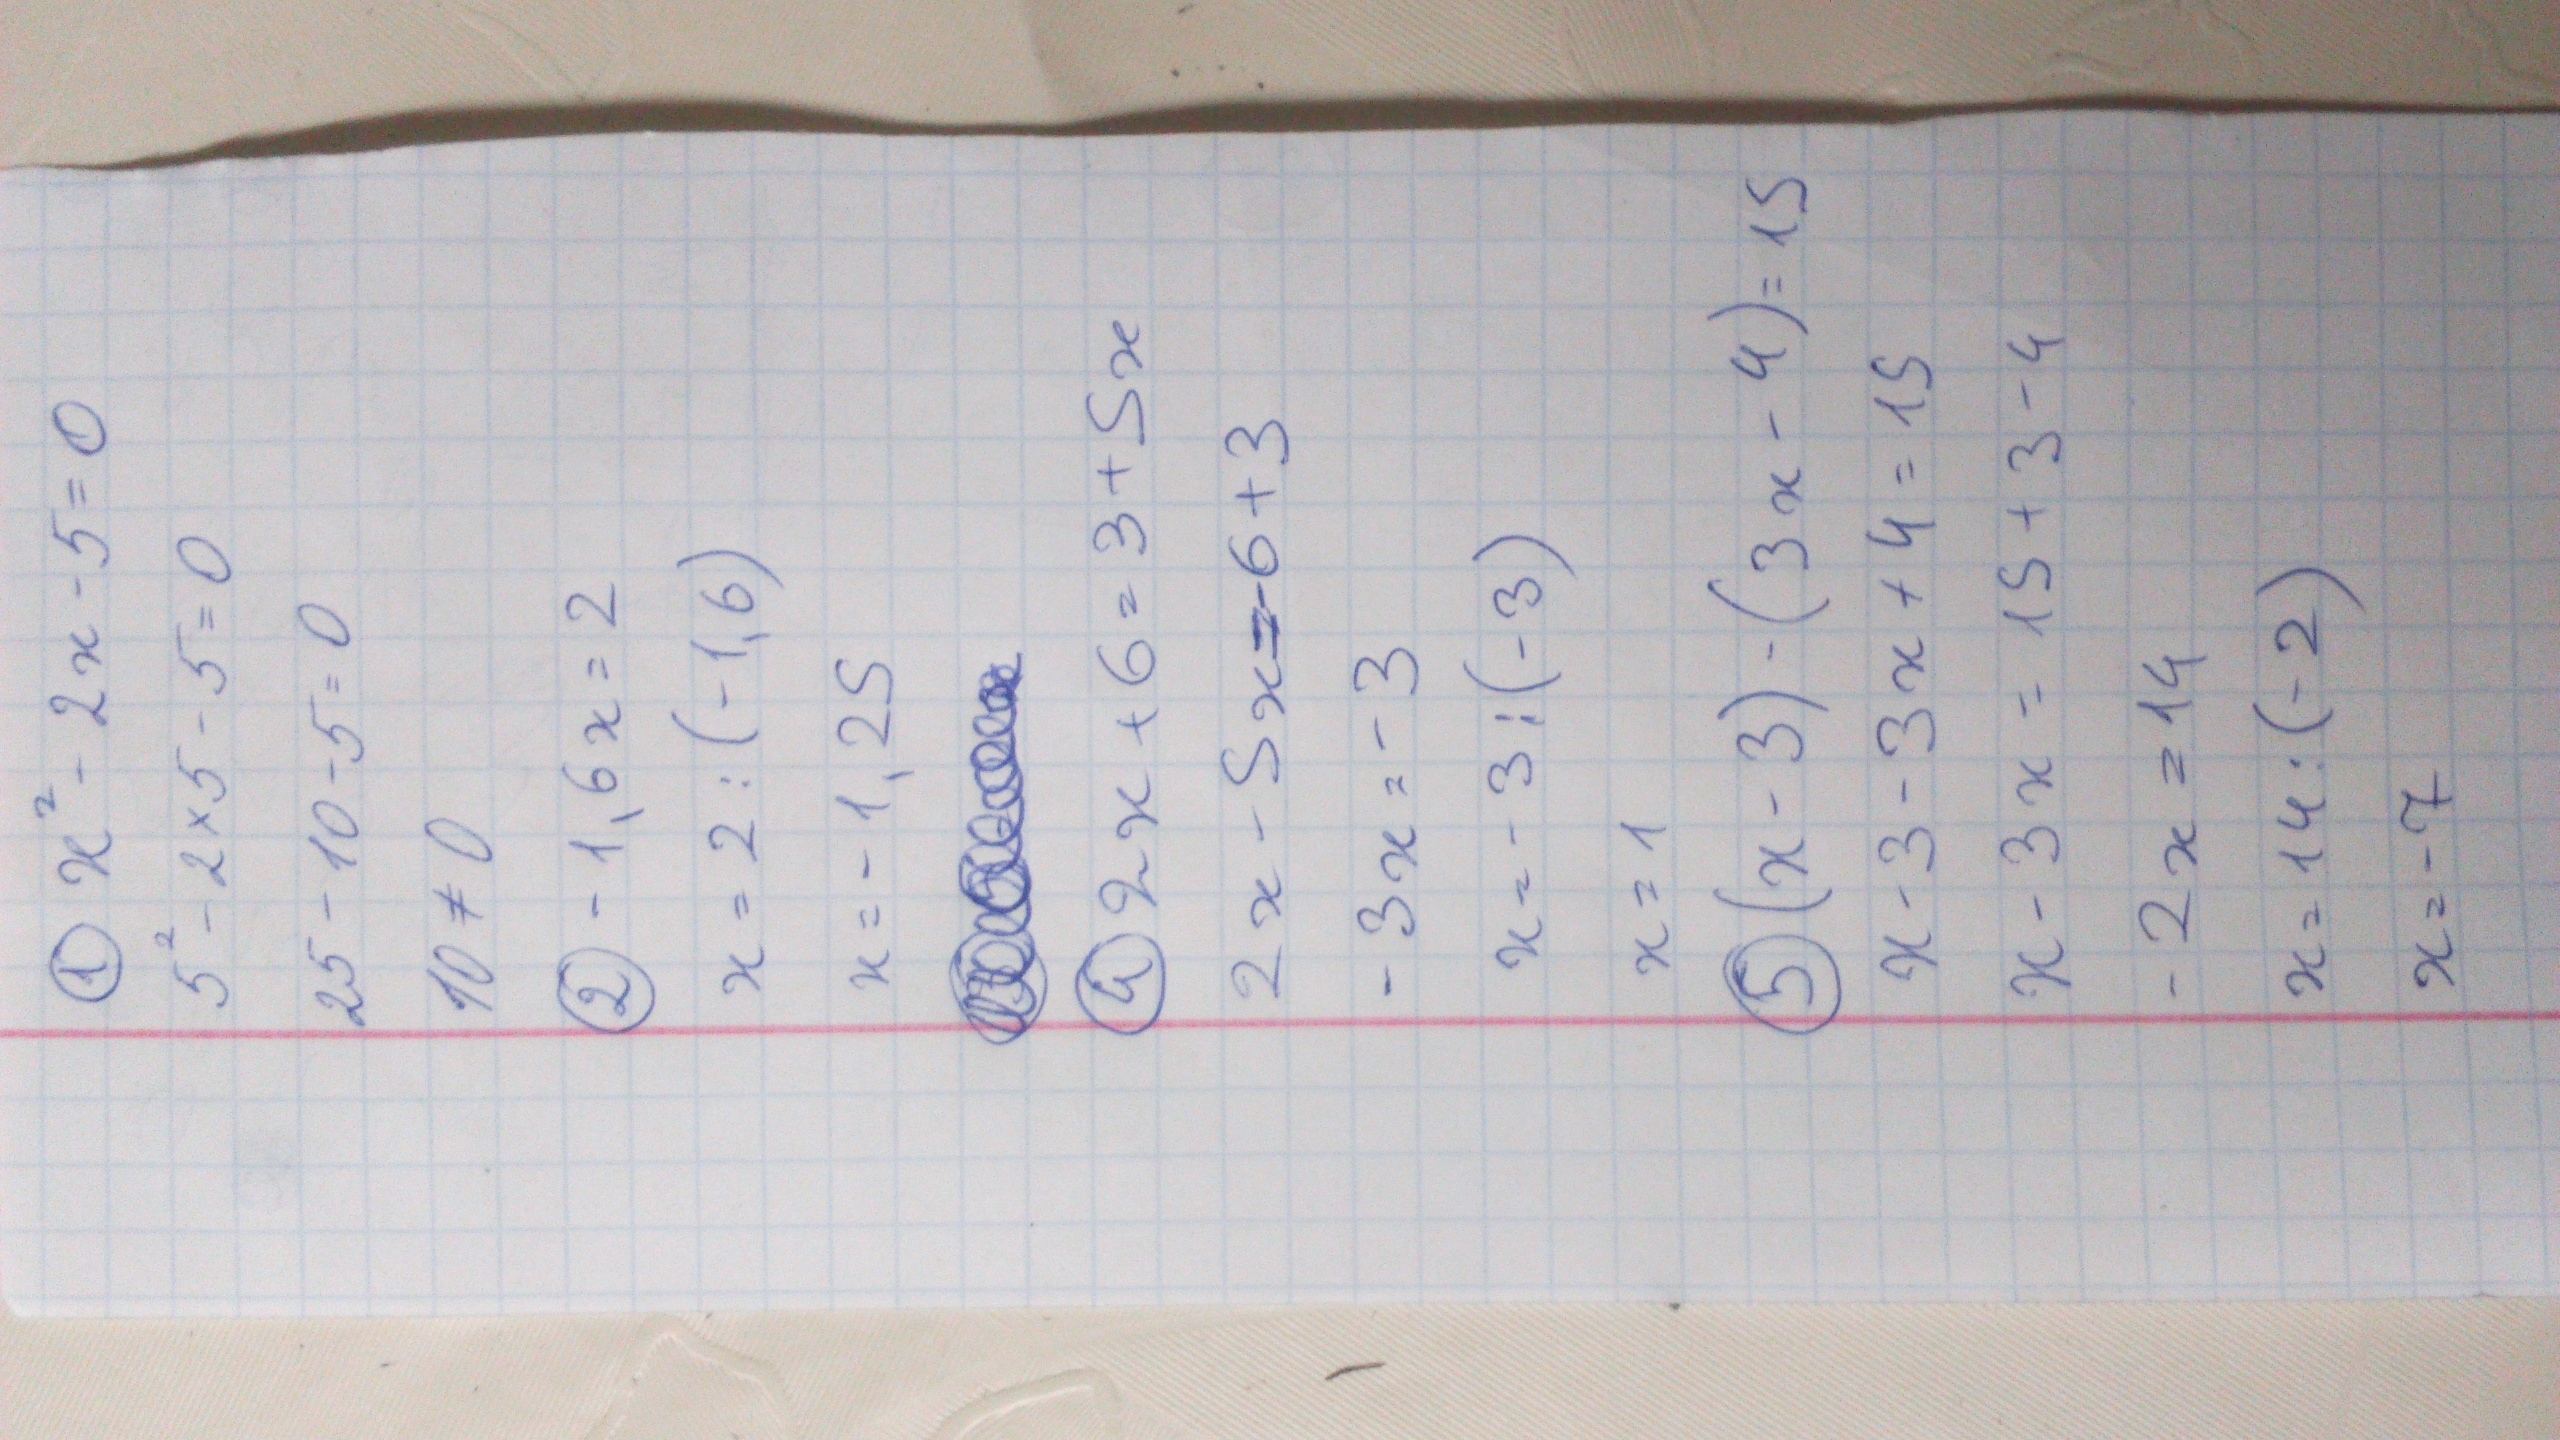 ① x² - 2x - 5 = 0
5² - 2 × 5 - 5 = 0
25 - 10 - 5 = 0
10 ≠ 0
② - 1,6x = 2
x = 2 : (-1,6)
x = - 1,25
④ 2x + 6 = 3 + 5x
2x - 5x = -6 + 3
- 3x = - 3
x = - 3 : (-3)
x = 1
⑤ (x - 3) - (3x - 4) = 15
x - 3 - 3x + 4 = 15
x - 3x = 15 + 3 - 4
- 2x = 14
x = 14 : (-2)
x = -7